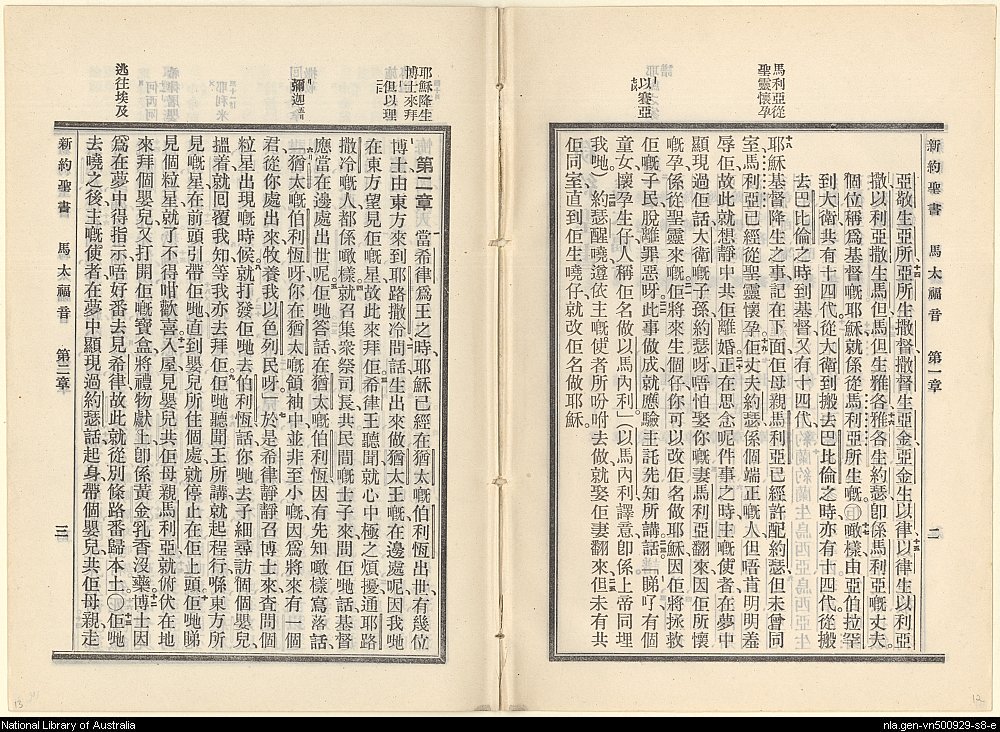 新約聖書 馬太福音 第一章 二
亞敬生亞所亞所生撒督撒督生亞金亞金生以律以律生以利亞
撒以利亞撒生馬但馬但生雅各雅各生約瑟卽係馬利亞嘅丈夫
個位稱爲基督嘅耶穌就係從馬利亞所生嘅噉樣由亞伯拉罕
到大衛共有十四代從大衛到搬去巴比倫之時亦有十四代從搬
去巴比倫之時到基督又有十四代
馬利亞從
聖靈懷孕
耶穌基督降生之事記在下面佢母親馬利亞已經許配約瑟但未曾同
室馬利亞已經從聖靈懷孕佢丈夫約瑟係個端正嘅人但唔肯明明羞
辱佢故此就想靜中共佢離婚正在思念呢件事之時主嘅使者在夢中
顯現過佢話大衛嘅子孫約瑟呀唔怕娶你嘅妻馬利亞翻來因佢所懷
嘅孕係從聖靈來嘅佢將來生個仔你可以改佢名做耶穌因佢將拯救
佢嘅子民脫離罪惡呀此事做成就應驗主託先知所講話「睇吖有個
以賽亞
童女懷孕生仔人稱佢名做以馬內利」(以馬內利譯意卽係上帝同埋
我哋)約瑟醒嘵遵依主嘅使者所吩咐去做就娶佢妻翻來但未有共
佢同室直到佢生嘵仔就改佢名做耶穌
耶穌降生
博士來拜
但以理
第二章 當希律爲王之時耶穌已經在猶太嘅伯利恆出世有幾位
博士由東方來到耶路撒冷問話生出來做猶太王嘅在邊處呢因我哋
在東方望見佢嘅星故此來拜佢希律王聽聞就心中極之煩擾通耶路
撒冷嘅人都係噉樣就召集衆祭司長共民間嘅士子來問佢哋話基督
彌迦
應當在邊處出世呢佢哋答話在猶太嘅伯利恆因有先知噉樣寫落話
「猶太嘅伯利恆呀你在猶太嘅領袖中並非至小嘅因爲將來有一個
君從你處出來牧養我以色列民呀」於是希律靜靜召博士來查問個
粒星出現嘅時候就打發佢哋去伯利恆話你哋去子細尋訪個個嬰兒
搵着就囘覆我知等我亦去拜佢佢哋聽聞王所講就起程行喺東方所
見嘅星在前頭引帶佢哋直到嬰兒所住個處就停止在佢上頭佢哋睇
見個粒星就了不得咁歡喜入屋見嬰兒共佢母親馬利亞就俯伏在地
來拜個嬰兒又打開佢嘅寶盒將禮物獻上卽係黃金乳香沒藥博士因
爲在夢中得指示唔好番去見希律故此就從別條路番歸本土佢哋
逃往埃及
去嘵之後主嘅使者在夢中顯現過約瑟話起身帶個嬰兒共佢母親走
新約聖書 馬太福音 第二章 三
13
12
National Library of Australia
nla.gen-vn500929-s8-e